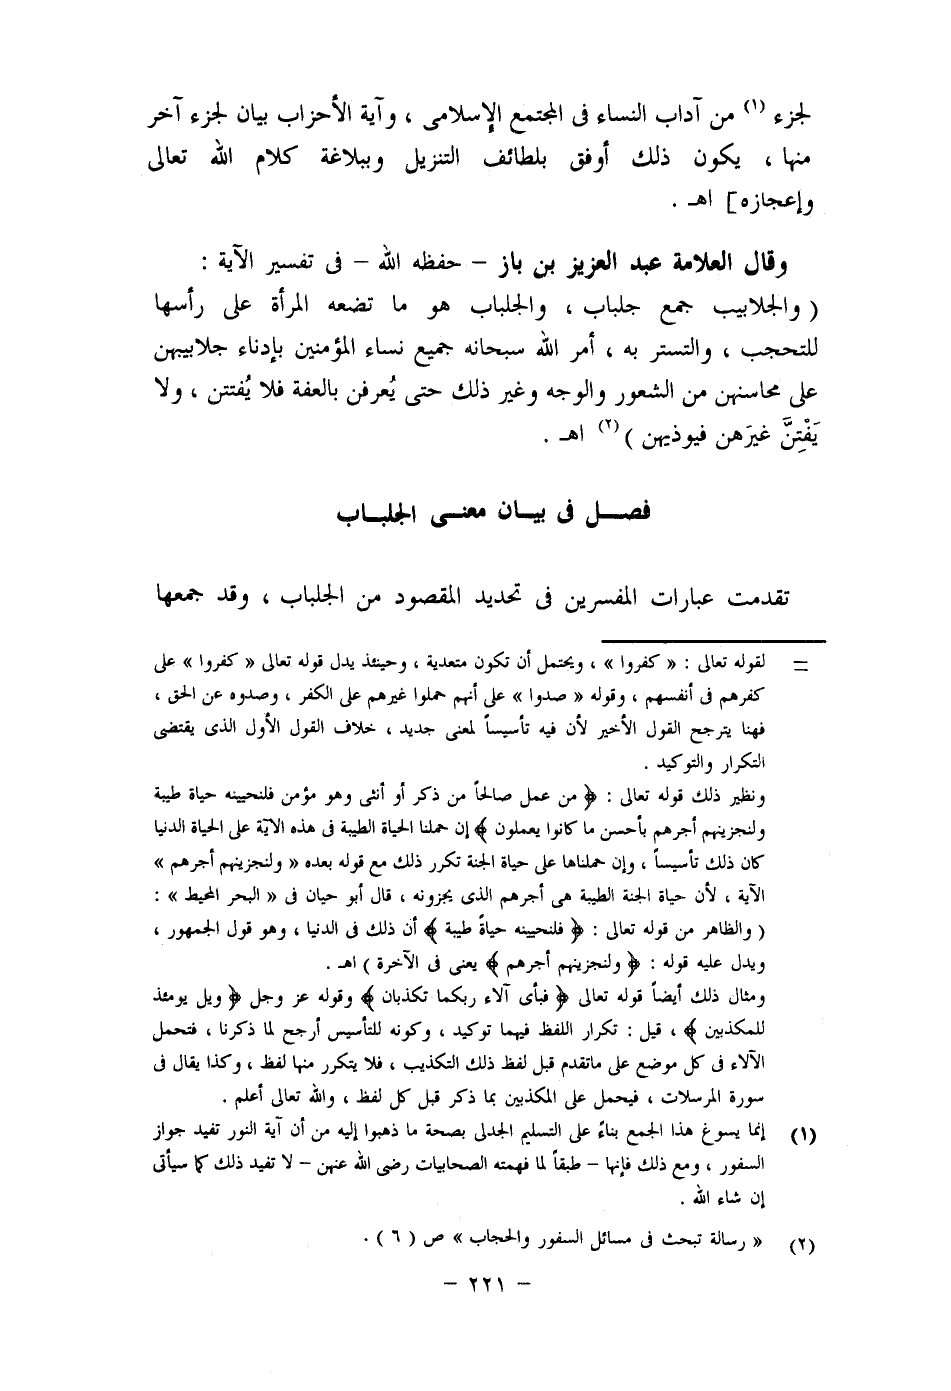 لجزء (١) من آداب النساء فى المجتمع الإسلامى ، وآية الأحزاب بيان لجزء آخر
منها ، يكون ذلك أوفق بلطائف التنزيل وببلاغة كلام الله تعالى
وإعجازه] اهـ .
وقال العلامة عبد العزيز بن باز – حفظه الله – فى تفسير الآية :
( والجلابيب جمع جلباب ، والجلباب هو ما تضعه المرأة على رأسها
للتحجب ، والتستر به ، أمر الله سبحانه جميع نساء المؤمنين بإدناء جلابيبهن
على محاسنهن من الشعور والوجه وغير ذلك حتى يُعرفن بالعفة فلا يُفتتن ، ولا
يَفْتِنَّ غيرَهن فيوذيهن )(٢) اهـ .
فصــل فى بيــان معنــى الجلبــاب
تقدمت عبارات المفسرين فى تحديد المقصود من الجلباب ، وقد جمعها
= لقوله تعالى : « كفروا » ، ويحتمل أن تكون متعدية ، وحينئذ يدل قوله تعالى « كفروا » على
كفرهم فى أنفسهم ، وقوله « صدوا » على أنهم حملوا غيرهم على الكفر ، وصدوه عن الحق ،
فهنا يترجح القول الأخير لأن فيه تأسيساً لمعنى جديد ، خلاف القول الأول الذى يقتضى
التكرار والتوكيد .
ونظير ذلك قوله تعالى : ﴿ من عمل صالحاً من ذكر أو أنثى وهو مؤمن فلنحيينه حياة طيبة
ولنجزينهم أجرهم بأحسن ما كانوا يعملون ﴾ إن حملنا الحياة الطيبة فى هذه الآية على الحياة الدنيا
كان ذلك تأسيساً ، وإن حملناها على حياة الجنة تكرر ذلك مع قوله بعده « ولنجزينهم أجرهم »
الآية ، لأن حياة الجنة الطيبة هى أجرهم الذى يجزونه ، قال أبو حيان فى « البحر المحيط » :
( والظاهر من قوله تعالى : ﴿ فلنحيينه حياةً طيبة ﴾ أن ذلك فى الدنيا ، وهو قول الجمهور ،
ويدل عليه قوله : ﴿ ولنجزينهم أجرهم ﴾ يعنى فى الآخرة ) اهـ .
ومثال ذلك أيضاً قوله تعالى ﴿ فبأى آلاء ربكما تكذبان ﴾ وقوله عز وجل ﴿ ويل يومئذ
للمكذبين ﴾ ، قيل : تكرار اللفظ فيهما توكيد ، وكونه للتأسيس أرجح لما ذكرنا ، فتحمل
الآلاء فى كل موضع على ماتقدم قبل لفظ ذلك التكذيب ، فلا يتكرر منها لفظ ، وكذا يقال فى
سورة المرسلات ، فيحمل على المكذبين بما ذكر قبل كل لفظ ، والله تعالى أعلم .
(١) إنما يسوغ هذا الجمع بناءً على التسليم الجدلى بصحة ما ذهبوا إليه من أن آية النور تفيد جواز
السفور ، ومع ذلك فإنها – طبقاً لما فهمته الصحابيات رضى الله عنهن – لا تفيد ذلك كما سيأتى
إن شاء الله .
(٢) « رسالة تبحث فى مسائل السفور والحجاب » ص ( ٦ ) .
– ٢٢١ –